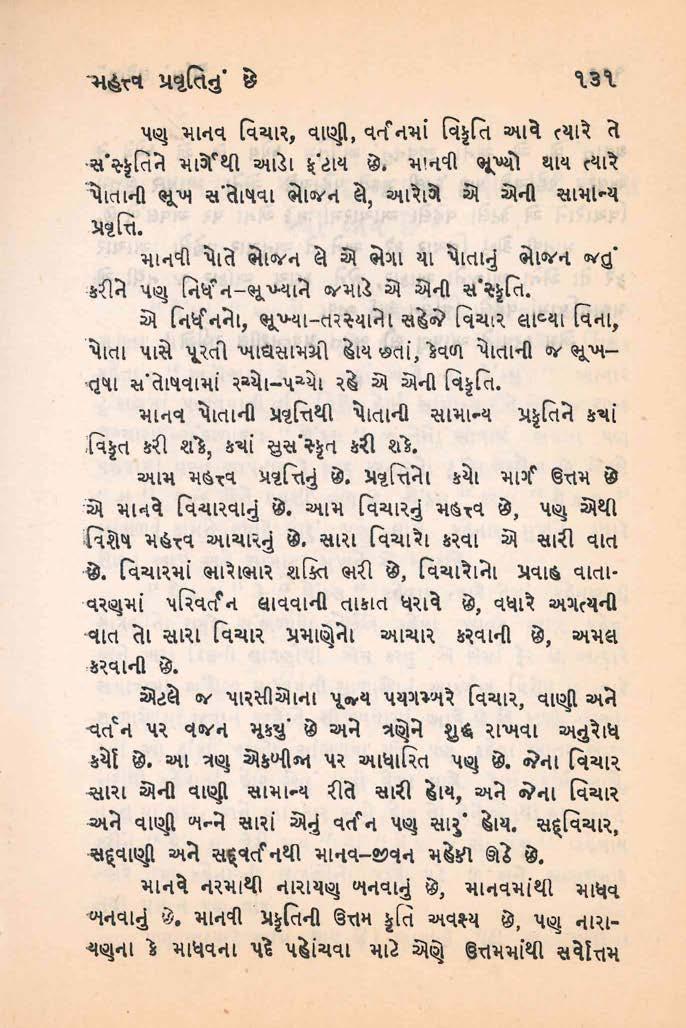 મહત્ત્વ પ્રવૃતિનું છે ૧૩૧
પણ માનવ વિચાર, વાણી, વર્તનમાં વિકૃતિ આવે ત્યારે તે
સંસ્કૃતિને માર્ગેથી આડો ફંટાય છે. માનવી ભૂખ્યો થાય ત્યારે
પોતાની ભૂખ સંતોષવા ભોજન લે, આરોગે એ એની સામાન્ય
પ્રવૃત્તિ.
માનવી પોતે ભોજન લે એ ભેગા યા પોતાનું ભોજન જતું
કરીને પણ નિર્ધન–ભૂખ્યાને જમાડે એ એની સંસ્કૃતિ.
એ નિર્ધનનો, ભૂખ્યા–તરસ્યાનો સહેજે વિચાર લાવ્યા વિના,
પોતા પાસે પૂરતી ખાદ્યસામગ્રી હોય છતાં, કેવળ પોતાની જ ભૂખ–
તૃષા સંતોષવામાં રચ્યો–પચ્યો રહે એ એની વિકૃતિ.
માનવ પોતાની પ્રવૃત્તિથી પોતાની સામાન્ય પ્રકૃતિને ક્યાં
વિકૃત કરી શકે, ક્યાં સુસંસ્કૃત કરી શકે.
આમ મહત્ત્વ પ્રવૃત્તિનું છે. પ્રવૃત્તિનો કયો માર્ગ ઉત્તમ છે
એ માનવે વિચારવાનું છે. આમ વિચારનું મહત્ત્વ છે, પણ એથી
વિશેષ મહત્ત્વ આચારનું છે. સારા વિચારો કરવા એ સારી વાત
છે. વિચારમાં ભારોભાર શક્તિ ભરી છે, વિચારોનો પ્રવાહ વાતા-
વરણમાં પરિવર્તન લાવવાની તાકાત ધરાવે છે, વધારે અગત્યની
વાત તો સારા વિચાર પ્રમાણેનો આચાર કરવાની છે, અમલ
કરવાની છે.
એટલે જ પારસીઓના પૂજ્ય પયગમ્બરે વિચાર, વાણી અને
વર્તન પર વજન મૂક્યું છે અને ત્રણેને શુદ્ધ રાખવા અનુરોધ
કર્યો છે. આ ત્રણ એકબીજા પર આધારિત પણ છે. જેના વિચાર
સારા એની વાણી સામાન્ય રીતે સારી હોય, અને જેના વિચાર
અને વાણી બન્ને સારાં એનું વર્તન પણ સારું હોય. સદ્‌વિચાર,
સદ્‌વાણી અને સદ્‌વર્તનથી માનવ–જીવન મહેકી ઊઠે છે.
માનવે નરમાથી નારાયણ બનવાનું છે, માનવમાંથી માધવ
બનવાનું છે. માનવી પ્રકૃતિની ઉત્તમ કૃતિ અવશ્ય છે, પણ નારા-
યણના કે માધવના પદે પહોંચવા માટે એણે ઉત્તમમાંથી સર્વોત્તમ